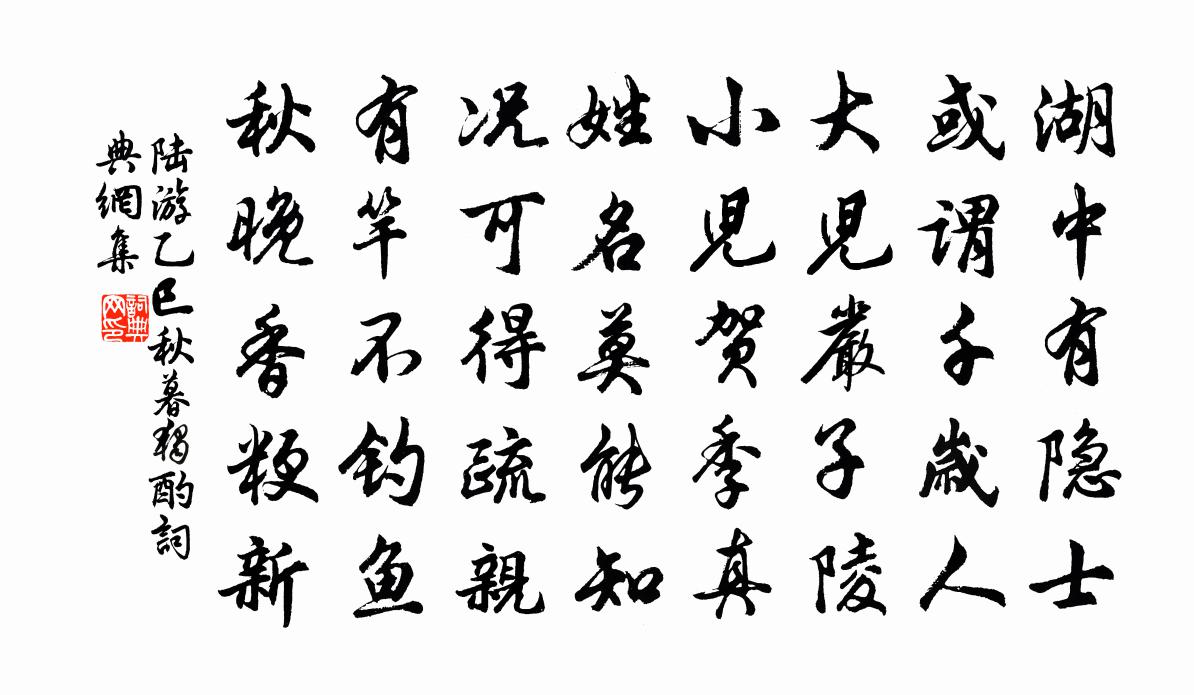 湖中有隐士
或谓千歲人
大兒嚴子陵
小兒贺季真
姓名莫能知
况可得疏親
有竿不钓鱼
秋晚香粳新
陆游乙巳秋暮獨酌詞
典網集
詞典
网印